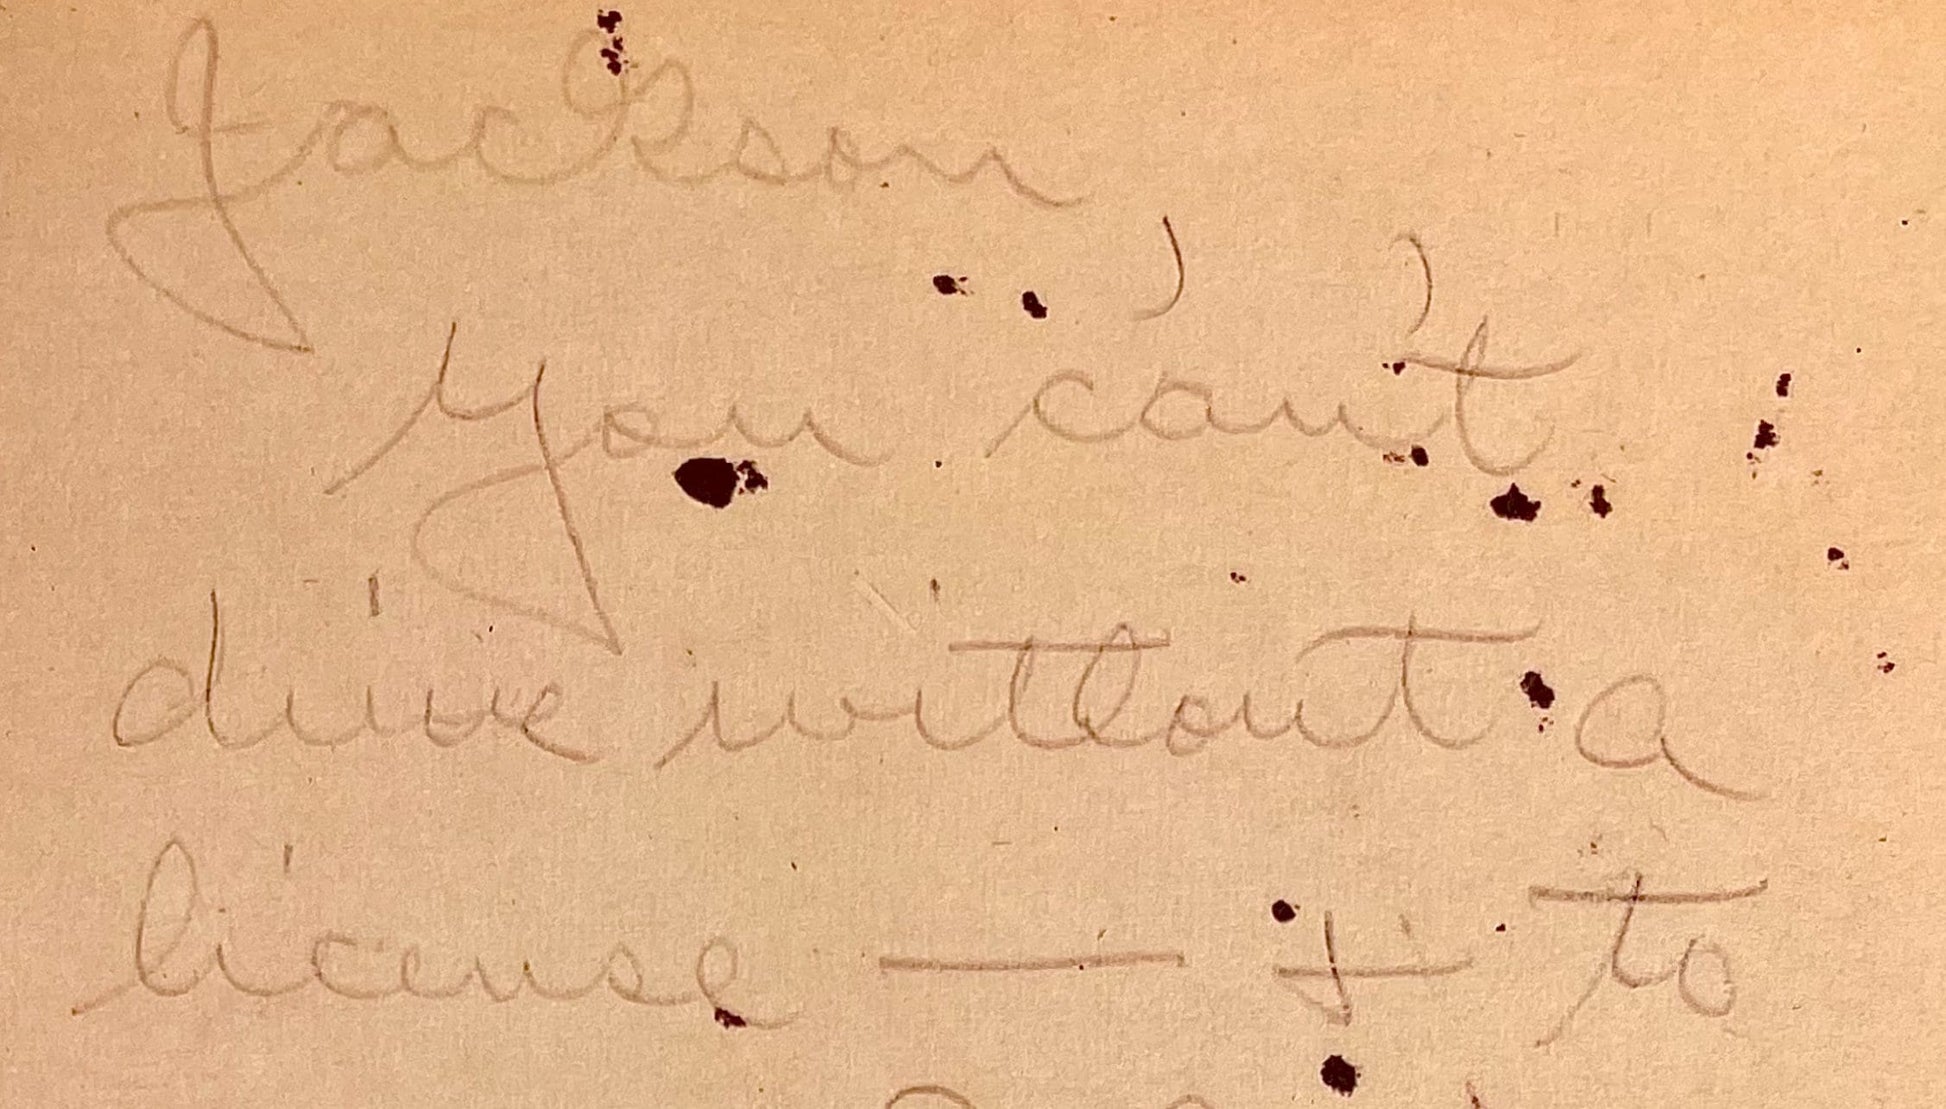 Jackson,
You can't
drive without a
license — + to